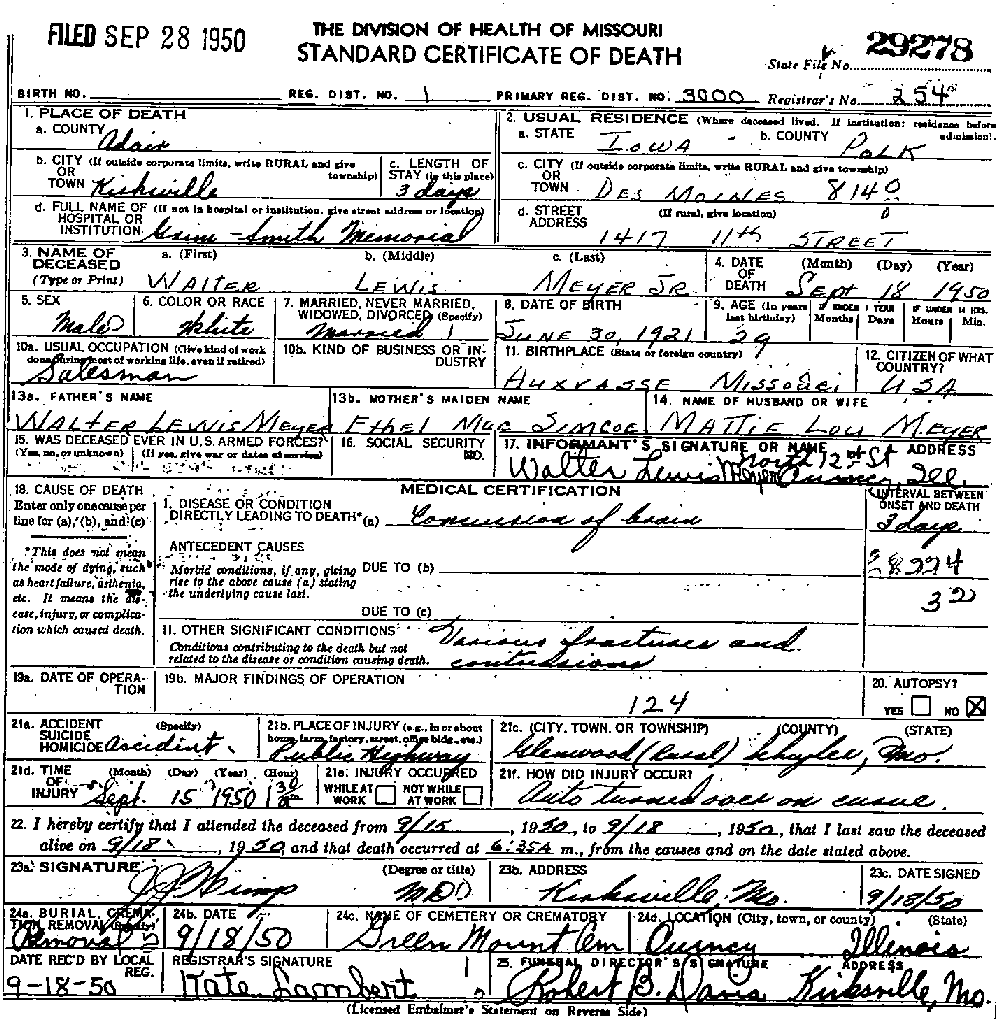 FILED SEP 28 1950
THE DIVISION OF HEALTH OF MISSOURI
STANDARD CERTIFICATE OF DEATH
29278
State File No.
BIRTH NO. REG. DIST. NO. 1 PRIMARY REG. DIST. NO. 3000 Registrar's No. 254
1. PLACE OF DEATH
a. COUNTY Adair
2. USUAL RESIDENCE (Where deceased lived. If institution: residence before admission).
a. STATE IOWA b. COUNTY POLK
b. CITY (If outside corporate limits, write RURAL and give township)
OR TOWN Kirksville
c. LENGTH OF STAY (in this place) 3 days
c. CITY (If outside corporate limits, write RURAL and give township)
OR TOWN DES MOINES 8140
d. FULL NAME OF (If not in hospital or institution, give street address or location)
HOSPITAL OR INSTITUTION Grim-Smith Memorial
d. STREET ADDRESS (If rural, give location)
1417 11th STREET
3. NAME OF DECEASED (Type or Print)
a. (First) b. (Middle) c. (Last)
WALTER LEWIS MEYER JR
4. DATE OF DEATH (Month) (Day) (Year)
Sept 18 1950
5. SEX Male
6. COLOR OR RACE White
7. MARRIED, NEVER MARRIED, WIDOWED, DIVORCED (Specify) Married 1
8. DATE OF BIRTH JUNE 30, 1921
9. AGE (In years last birthday) 29
IF UNDER 1 YEAR Months Days
IF UNDER 24 HRS. Hours Min.
10a. USUAL OCCUPATION (Give kind of work done during most of working life, even if retired)
Salesman
10b. KIND OF BUSINESS OR INDUSTRY
11. BIRTHPLACE (State or foreign country)
AUXVASSE MISSOURI
12. CITIZEN OF WHAT COUNTRY?
USA
13a. FATHER'S NAME
WALTER LEWIS MEYER
13b. MOTHER'S MAIDEN NAME
Ethel Mae SIMCOE
14. NAME OF HUSBAND OR WIFE
MATTIE LOU MEYER
15. WAS DECEASED EVER IN U.S. ARMED FORCES?
(Yes, no, or unknown) (If yes, give war or dates of service)
16. SOCIAL SECURITY NO.
17. INFORMANT'S SIGNATURE OR NAME ADDRESS
Walter Lewis North 12 St Quincy Ill.
18. CAUSE OF DEATH
Enter only one cause per line for (a), (b), and (c)
*This does not mean the mode of dying, such as heart failure, asthenia, etc. It means the disease, injury, or complication which caused death.
MEDICAL CERTIFICATION
INTERVAL BETWEEN ONSET AND DEATH
I. DISEASE OR CONDITION DIRECTLY LEADING TO DEATH* (a) Concussion of brain 3 days
ANTECEDENT CAUSES
Morbid conditions, if any, giving rise to the above cause (a) stating the underlying cause last.
DUE TO (b)
8224
32
DUE TO (c)
II. OTHER SIGNIFICANT CONDITIONS
Conditions contributing to the death but not related to the disease or condition causing death.
Various fractures and
contussions
19a. DATE OF OPERATION
19b. MAJOR FINDINGS OF OPERATION
124
20. AUTOPSY?
YES NO X
21a. ACCIDENT SUICIDE HOMICIDE (Specify) Accident
21b. PLACE OF INJURY (e.g., in or about home, farm, factory, street, office bldg., etc.)
Public Highway
21c. (CITY, TOWN, OR TOWNSHIP) (COUNTY) (STATE)
Glenwood (Rural) Schuyler, Mo.
21d. TIME OF INJURY (Month) (Day) (Year) (Hour)
Sept. 15 1950 1 30
21e. INJURY OCCURRED
WHILE AT WORK NOT WHILE AT WORK
21f. HOW DID INJURY OCCUR?
Auto turned over on curve.
22. I hereby certify that I attended the deceased from 9/15, 1950, to 9/18, 1950, that I last saw the deceased
alive on 9/18, 1950, and that death occurred at 6:35A m., from the causes and on the date stated above.
23a. SIGNATURE (Degree or title)
MD
23b. ADDRESS
Kirksville, Mo.
23c. DATE SIGNED
9/18/50
24a. BURIAL, CREMATION, REMOVAL (Specify)
Removal
24b. DATE
9/18/50
24c. NAME OF CEMETERY OR CREMATORY
Green Mount Cem
24d. LOCATION (City, town, or county) (State)
Quincy Illinois
DATE REC'D BY LOCAL REG.
9-18-50
REGISTRAR'S SIGNATURE
Kate Lambert
25. FUNERAL DIRECTOR'S SIGNATURE ADDRESS
Robert B. Davis Kirksville, Mo.
(Licensed Embalmer's Statement on Reverse Side)